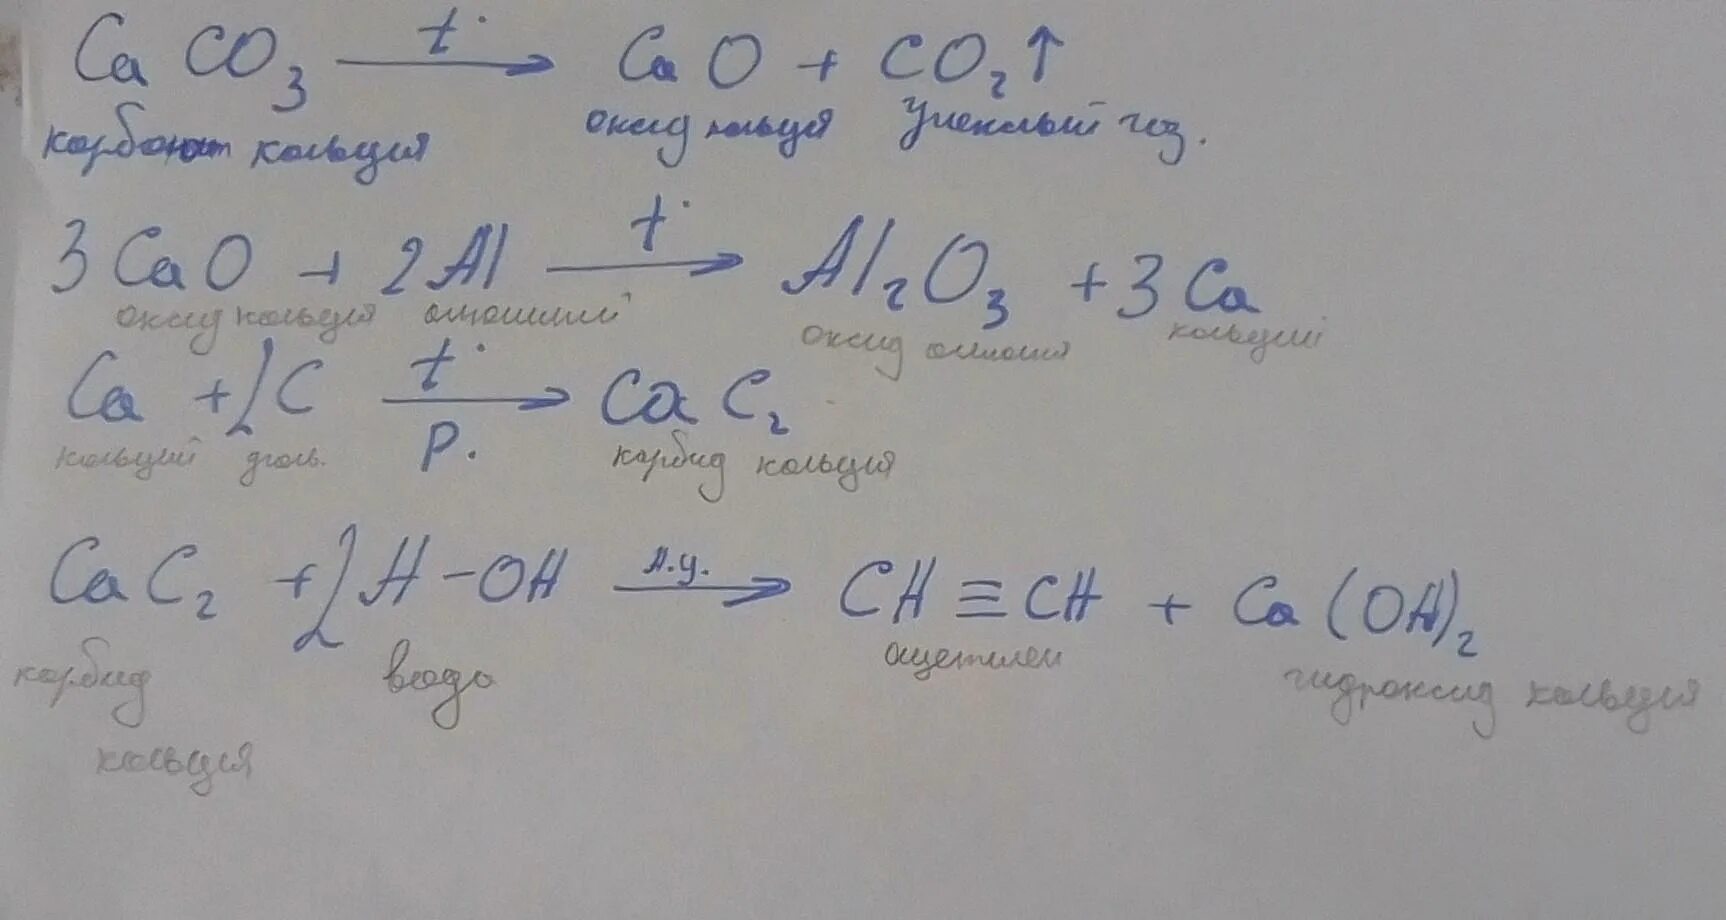 CaCO₃ —t°→ CaO + CO₂↑
карбонат кальция оксид кальция углекислый газ.
3CaO + 2Al —t°→ Al₂O₃ + 3Ca
оксид кальция алюминий оксид алюминия кальций
Ca + 2C —t° p.→ CaC₂
кальций уголь. карбид кальция
CaC₂ + 2H-OH —н.у.→ CH≡CH + Ca(OH)₂
карбид вода ацетилен гидроксид кальция
кальция